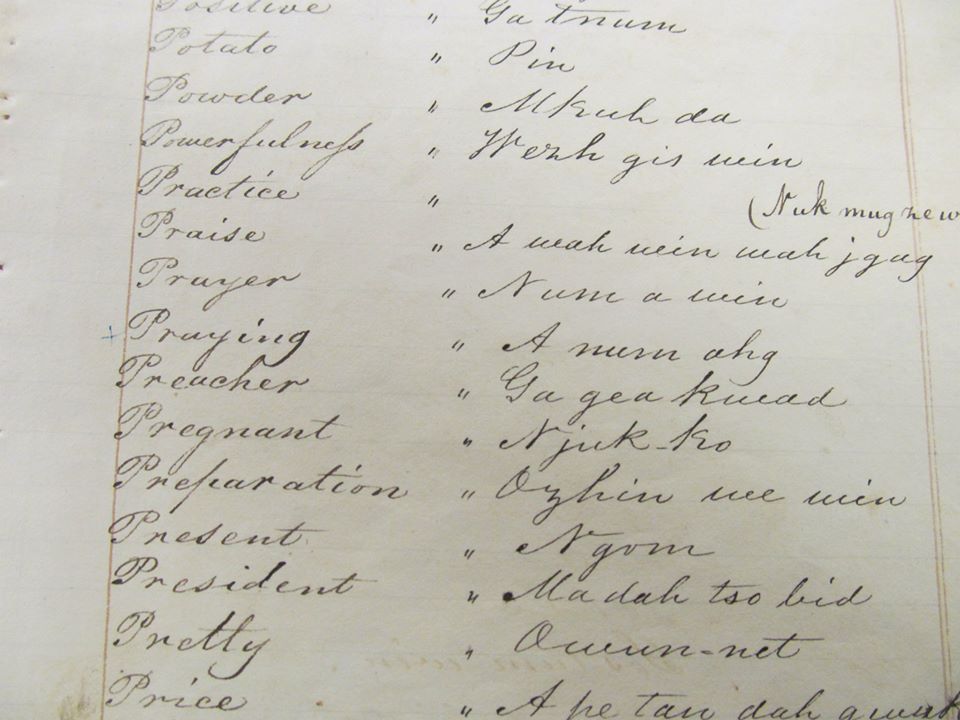 Positive " Ga tnum
Potato " Pin
Powder " Mkuh da
Powerfulness " Wezh gis win
Practice "
(Nuk mug ne w
Praise " A wah wein wah jgag
Prayer " Num a win
Praying " A num ahg
Preacher " Ga gea kwad
Pregnant " Njuk-ko
Preparation " Ozhin we win
Present " Ngom
President " Ma dah tso bid
Pretty " Owun-net
Price " A pe tan dah gwuk